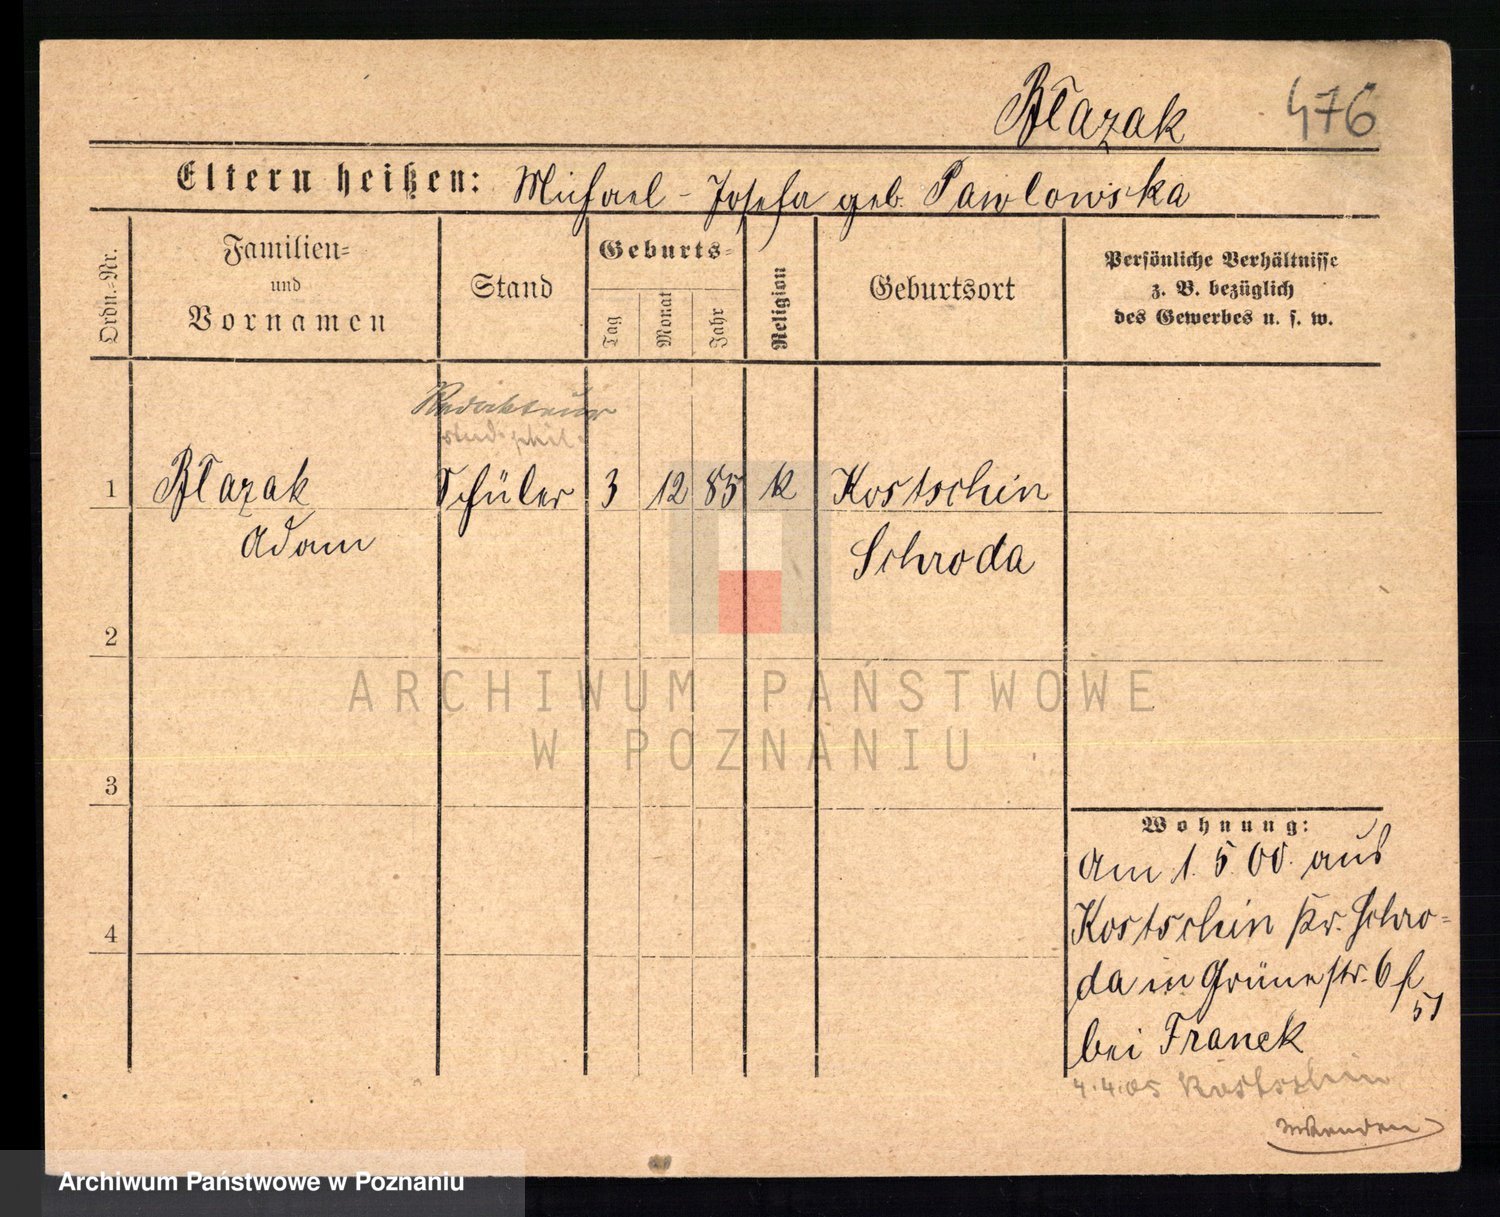 Błazak 476
Eltern heißen: Michael - Josefa geb. Pawlowska
Ordn.-Nr.
Familien-
und
Vornamen
Stand
Geburts-
Tag
Monat
Jahr
Religion
Geburtsort
Persönliche Verhältnisse
z. B. bezüglich
des Gewerbes u. s. w.
Redakteur
stud. phil.
1 Błazak Schüler 3 12 85 k Kostschin
Adam Schroda
2
3
4
ARCHIWUM PAŃSTWOWE
W POZNANIU
Wohnung:
Am 1. 5. 00. aus
Kostschin Kr. Schro-
da in Grünestr. 6
51
bei Franek
4.4.05 Kostschin
Archiwum Państwowe w Poznaniu